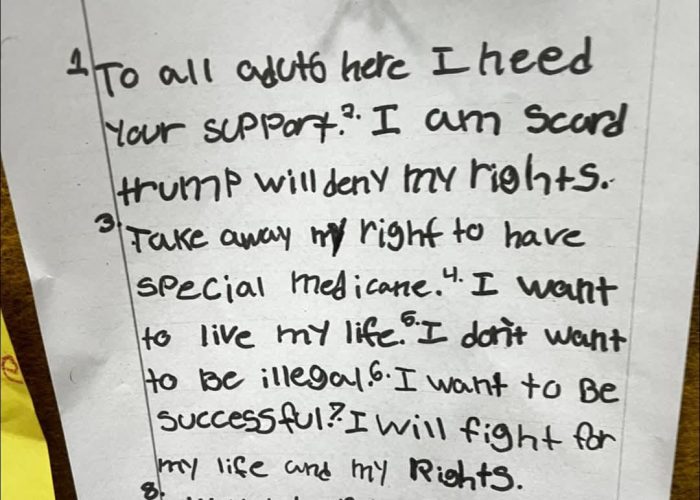 1. To all aduts here I need
your support. 2. I am Scard
trump will deny my rights.
3. Take away my right to have
special medicane. 4. I want
to live my life. 5. I don't want
to be illegal. 6. I want to Be
successful. 7. I will fight for
my life and my Rights.
8.